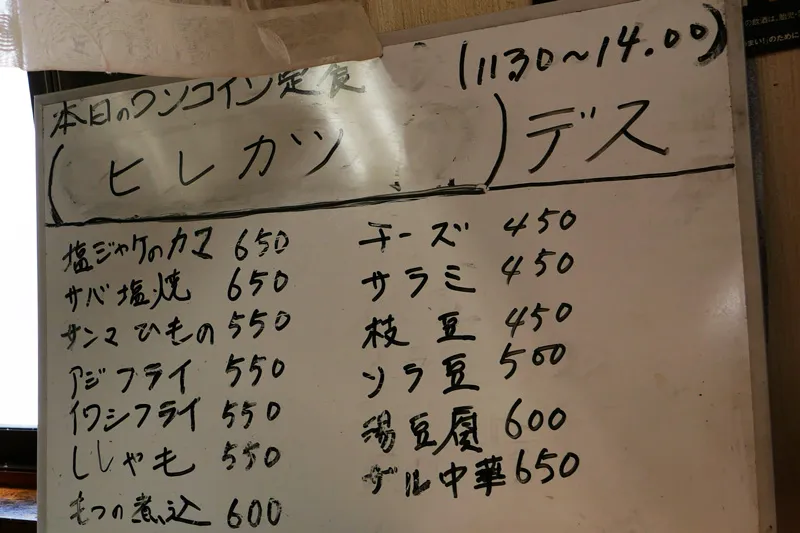 (11:30～14.00)
本日のワンコイン定食
(ヒレカツ)デス
塩ジャケのカマ 650
サバ塩焼 650
サンマひもの 550
アジフライ 550
イワシフライ 550
ししゃも 550
もつの煮込 600
チーズ 450
サラミ 450
枝豆 450
ソラ豆 500
湯豆腐 600
ザル中華 650